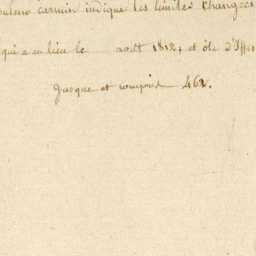 couleur carmin indique les limites changées
qui a eu lieu le août 1812, et ôté d'Office
Jusque et compris 462.